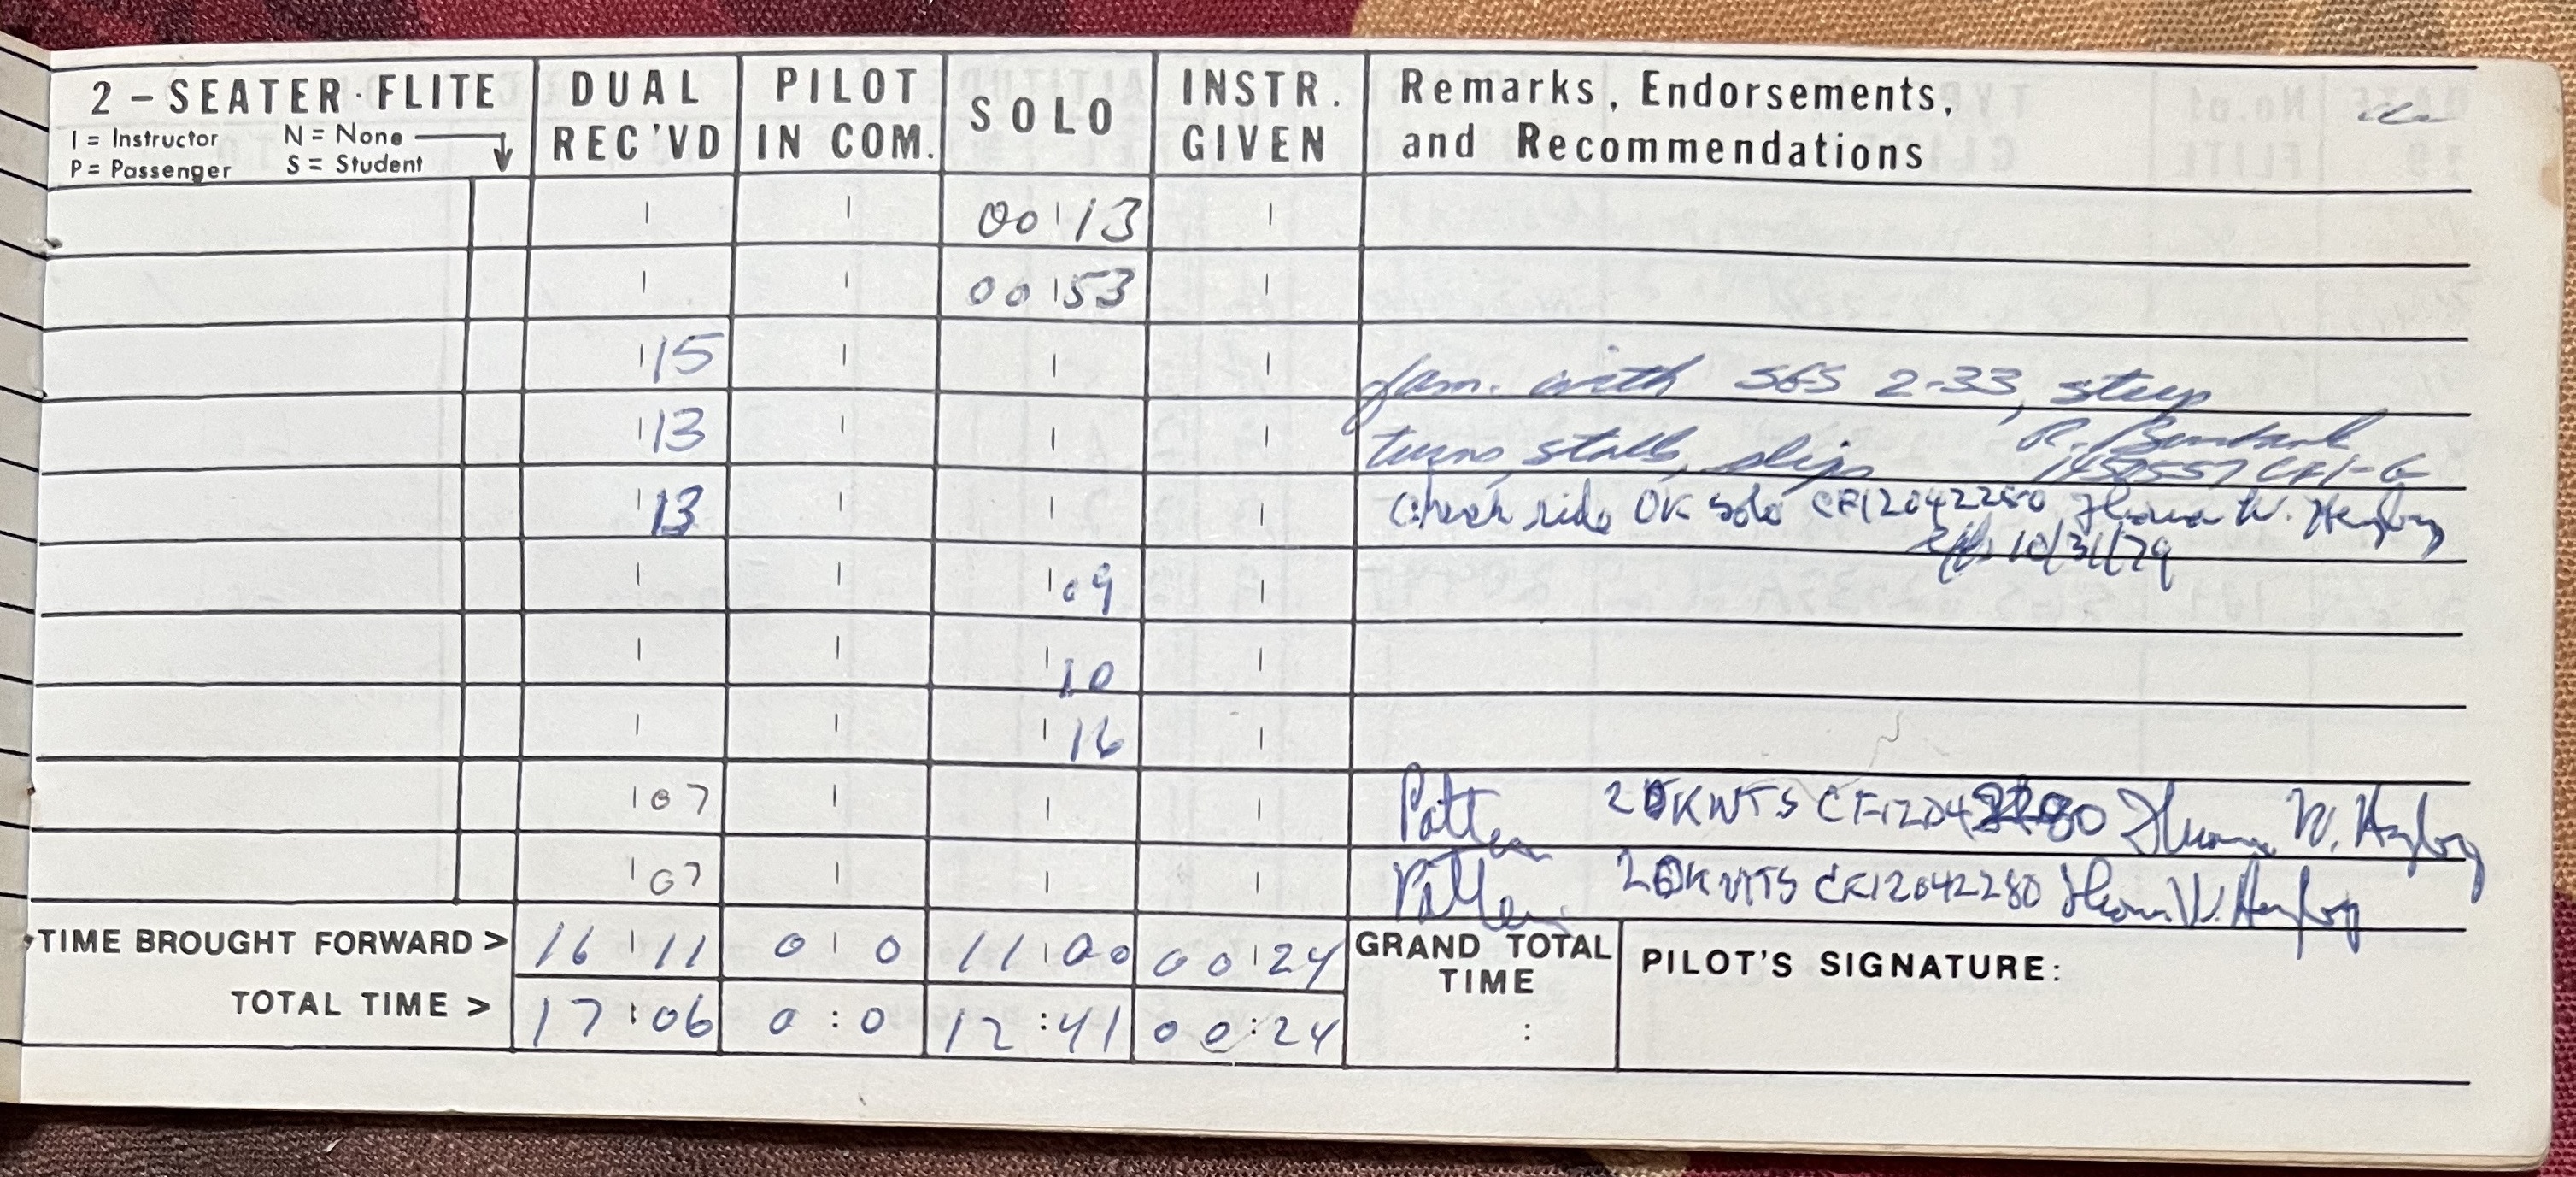 2 - SEATER · FLITE
I = Instructor N = None
P = Passenger S = Student
DUAL REC'VD
PILOT IN COM.
SOLO
INSTR. GIVEN
Remarks, Endorsements, and Recommendations
00 13
00 53
15 fam. with SGS 2-33, steep
13 turns, stalls, slips R.
CFI-G
13 Check ride OK solo CFI2042280 Thomas W.
10/31/79
09
10
16
07 Pattern 20KNTS Thomas W.
07 Pattern 20KNTS CFI2042280 Thomas W.
TIME BROUGHT FORWARD > 16 11 0 0 11 00 00 24
TOTAL TIME > 17:06 0:0 12:41 00:24
GRAND TOTAL TIME
:
PILOT'S SIGNATURE: